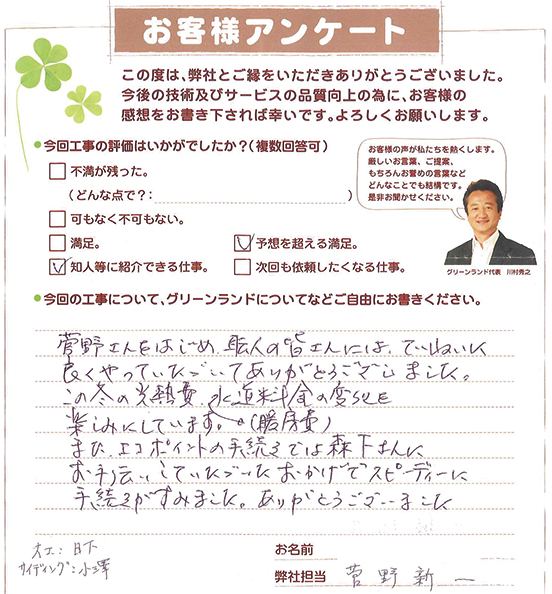 お客様アンケート
この度は、弊社とご縁をいただきありがとうございました。
今後の技術及びサービスの品質向上の為に、お客様の
感想をお書き下されば幸いです。よろしくお願いします。
●今回工事の評価はいかがでしたか?(複数回答可)
不満が残った。
(どんな点で?: )
可もなく不可もない。
満足。
予想を超える満足。
知人等に紹介できる仕事。
次回も依頼したくなる仕事。
お客様の声が私たちを熱くします。
厳しいお言葉、ご提案、
もちろんお誉めの言葉など
どんなことでも結構です。
是非お聞かせください。
グリーンランド代表 川村秀之
●今回の工事について、グリーンランドについてなどご自由にお書きください。
菅野さんをはじめ、職人の皆さんには、ていねいに
良くやっていただいてありがとうございました。
この冬の光熱費、水道料金の変化を
楽しみにしています。(暖房費)
また、エコポイントの手続きでは森下さんに
お手伝いしていただいたおかげでスピーディーに
手続きがすみました。ありがとうございました
大工:日下
サイディング:小澤
お名前
弊社担当 菅野新一